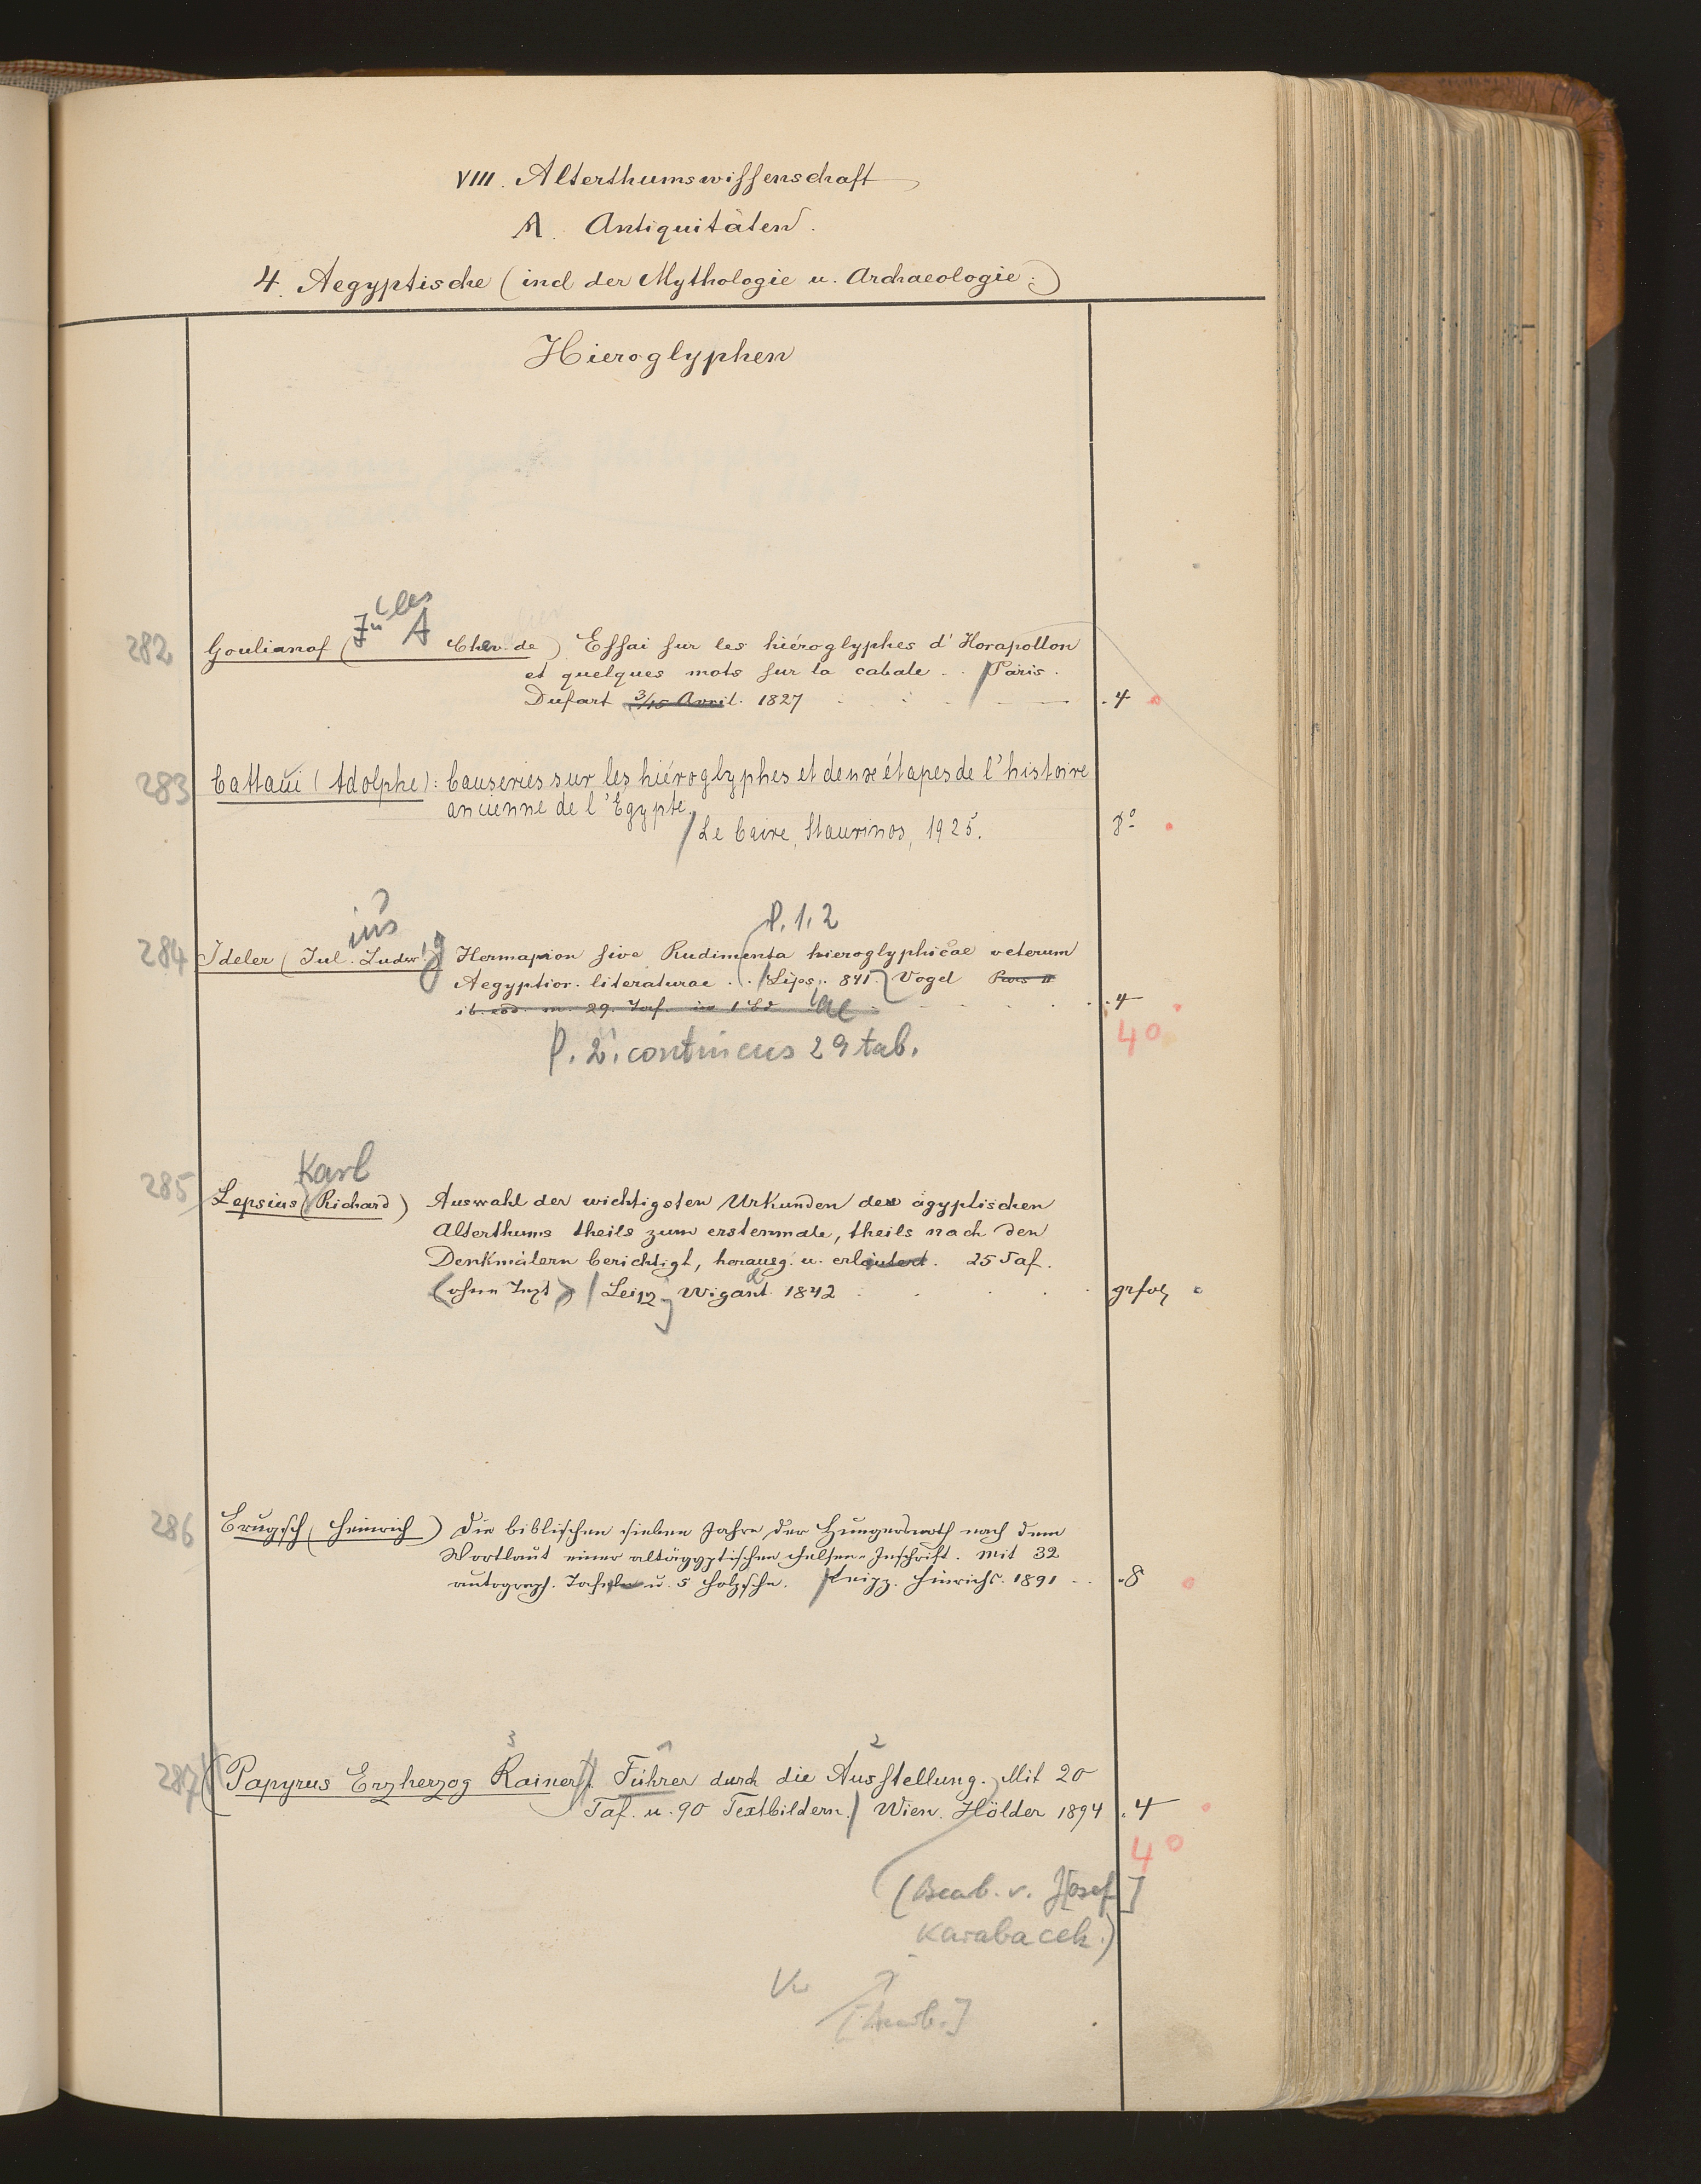 VIII. Alterthumswissenschaft
A. Antiquitäten.
4. Aegyptische (incl der Mythologie u. Archaeologie.)
Hieroglyphen
282 Goulianof ( A Chev. de) Essai sur les hiéroglyphes d'Horapollon
et quelques mots sur la cabale . . / Paris.
Dufart 3/15 Avril. 1827 . 4
283 Cattaui (Adolphe): Causeries sur les hiéroglyphes et deux étapes de l'histoire
ancienne de l'Egypte.
/ Le Caire, Staurinos, 1925. 8°
ius P. 1. 2
284 Ideler (Jul. Ludwig) Hermapion sive Rudimenta hieroglyphicae veterum
Aegyptior. literaturae . . / Lips. 841. Vogel Pars II
ib. eod. m. 29. Taf. in 1 Bd . 4
P. 2. continens 29 tab. 4°
Karl
285 Lepsius (Richard) Auswahl der wichtigsten Urkunden des ägyptischen
Alterthums theils zum erstenmale, theils nach den
Denkmälern berichtigt, herausg. u. erläutert. 25 Taf.
(ohne Text) / Leipz. Wigand 1842 . . . grfol
286 Brugsch (Heinrich) Die biblischen sieben Jahre der Hungersnoth nach dem
Wortlaut einer altägyptischen Felsen-Inschrift. Mit 32
autograph. Tafeln u. 5 Holzschn. / Leipz. Hinrichs. 1891 . . . 8
3 1 2
287 (Papyrus Erzherzog Rainer). Führer durch die Ausstellung. Mit 20
Taf. u. 90 Textbildern. / Wien. Hölder 1894 . 4
4°
(Bearb. v. J[osef]
Karabacek.)